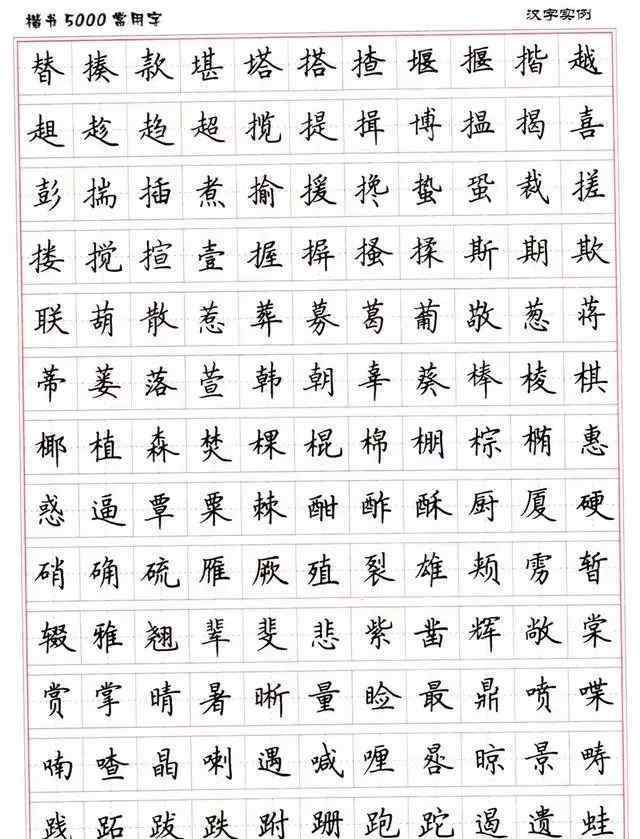 楷书5000常用字 汉字实例
替 揍 款 堪 塔 搭 揸 堰 揠 揩 越
趄 趁 趋 超 揽 提 揖 博 揾 揭 喜
彭 揣 插 煮 揄 援 搀 蛰 蛩 裁 搓
搂 搅 揎 壹 握 摒 搔 揉 斯 期 欺
联 葫 散 惹 葬 募 葛 葡 敬 葱 蒋
蒂 蒌 落 萱 韩 朝 辜 葵 棒 棱 棋
椰 植 森 焚 棵 棍 棉 棚 棕 椭 惠
惑 逼 覃 粟 棘 酣 酢 酥 厨 厦 硬
硝 确 硫 雁 厥 殖 裂 雄 颊 雳 暂
辍 雅 翘 辈 斐 悲 紫 凿 辉 敞 棠
赏 掌 晴 暑 晰 量 睑 最 鼎 喷 喋
喃 喳 晶 喇 遇 喊 喱 晷 晾 景 畴
践 跖 跋 跌 跗 跚 跑 跎 遏 遗 蛙